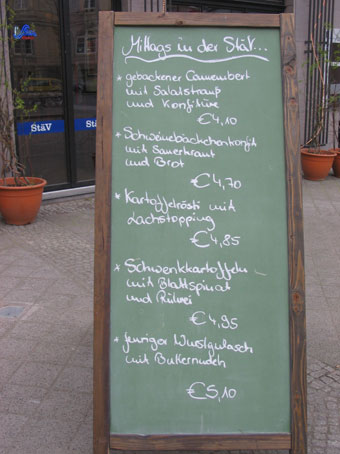 Mittags in der StäV...
* gebackener Camembert
mit Salatstrauß
und Konfitüre
€4,10
* Schweinebäckchenkonfit
mit Sauerkraut
und Brot
€4,70
* Kartoffelrösti mit
Lachstopping
€4,85
* Schwenkkartoffeln
mit Blattspinat
und Rührei
€4,95
* feuriger Wurstgulasch
mit Butternudeln
€5,10
StäV
Stä